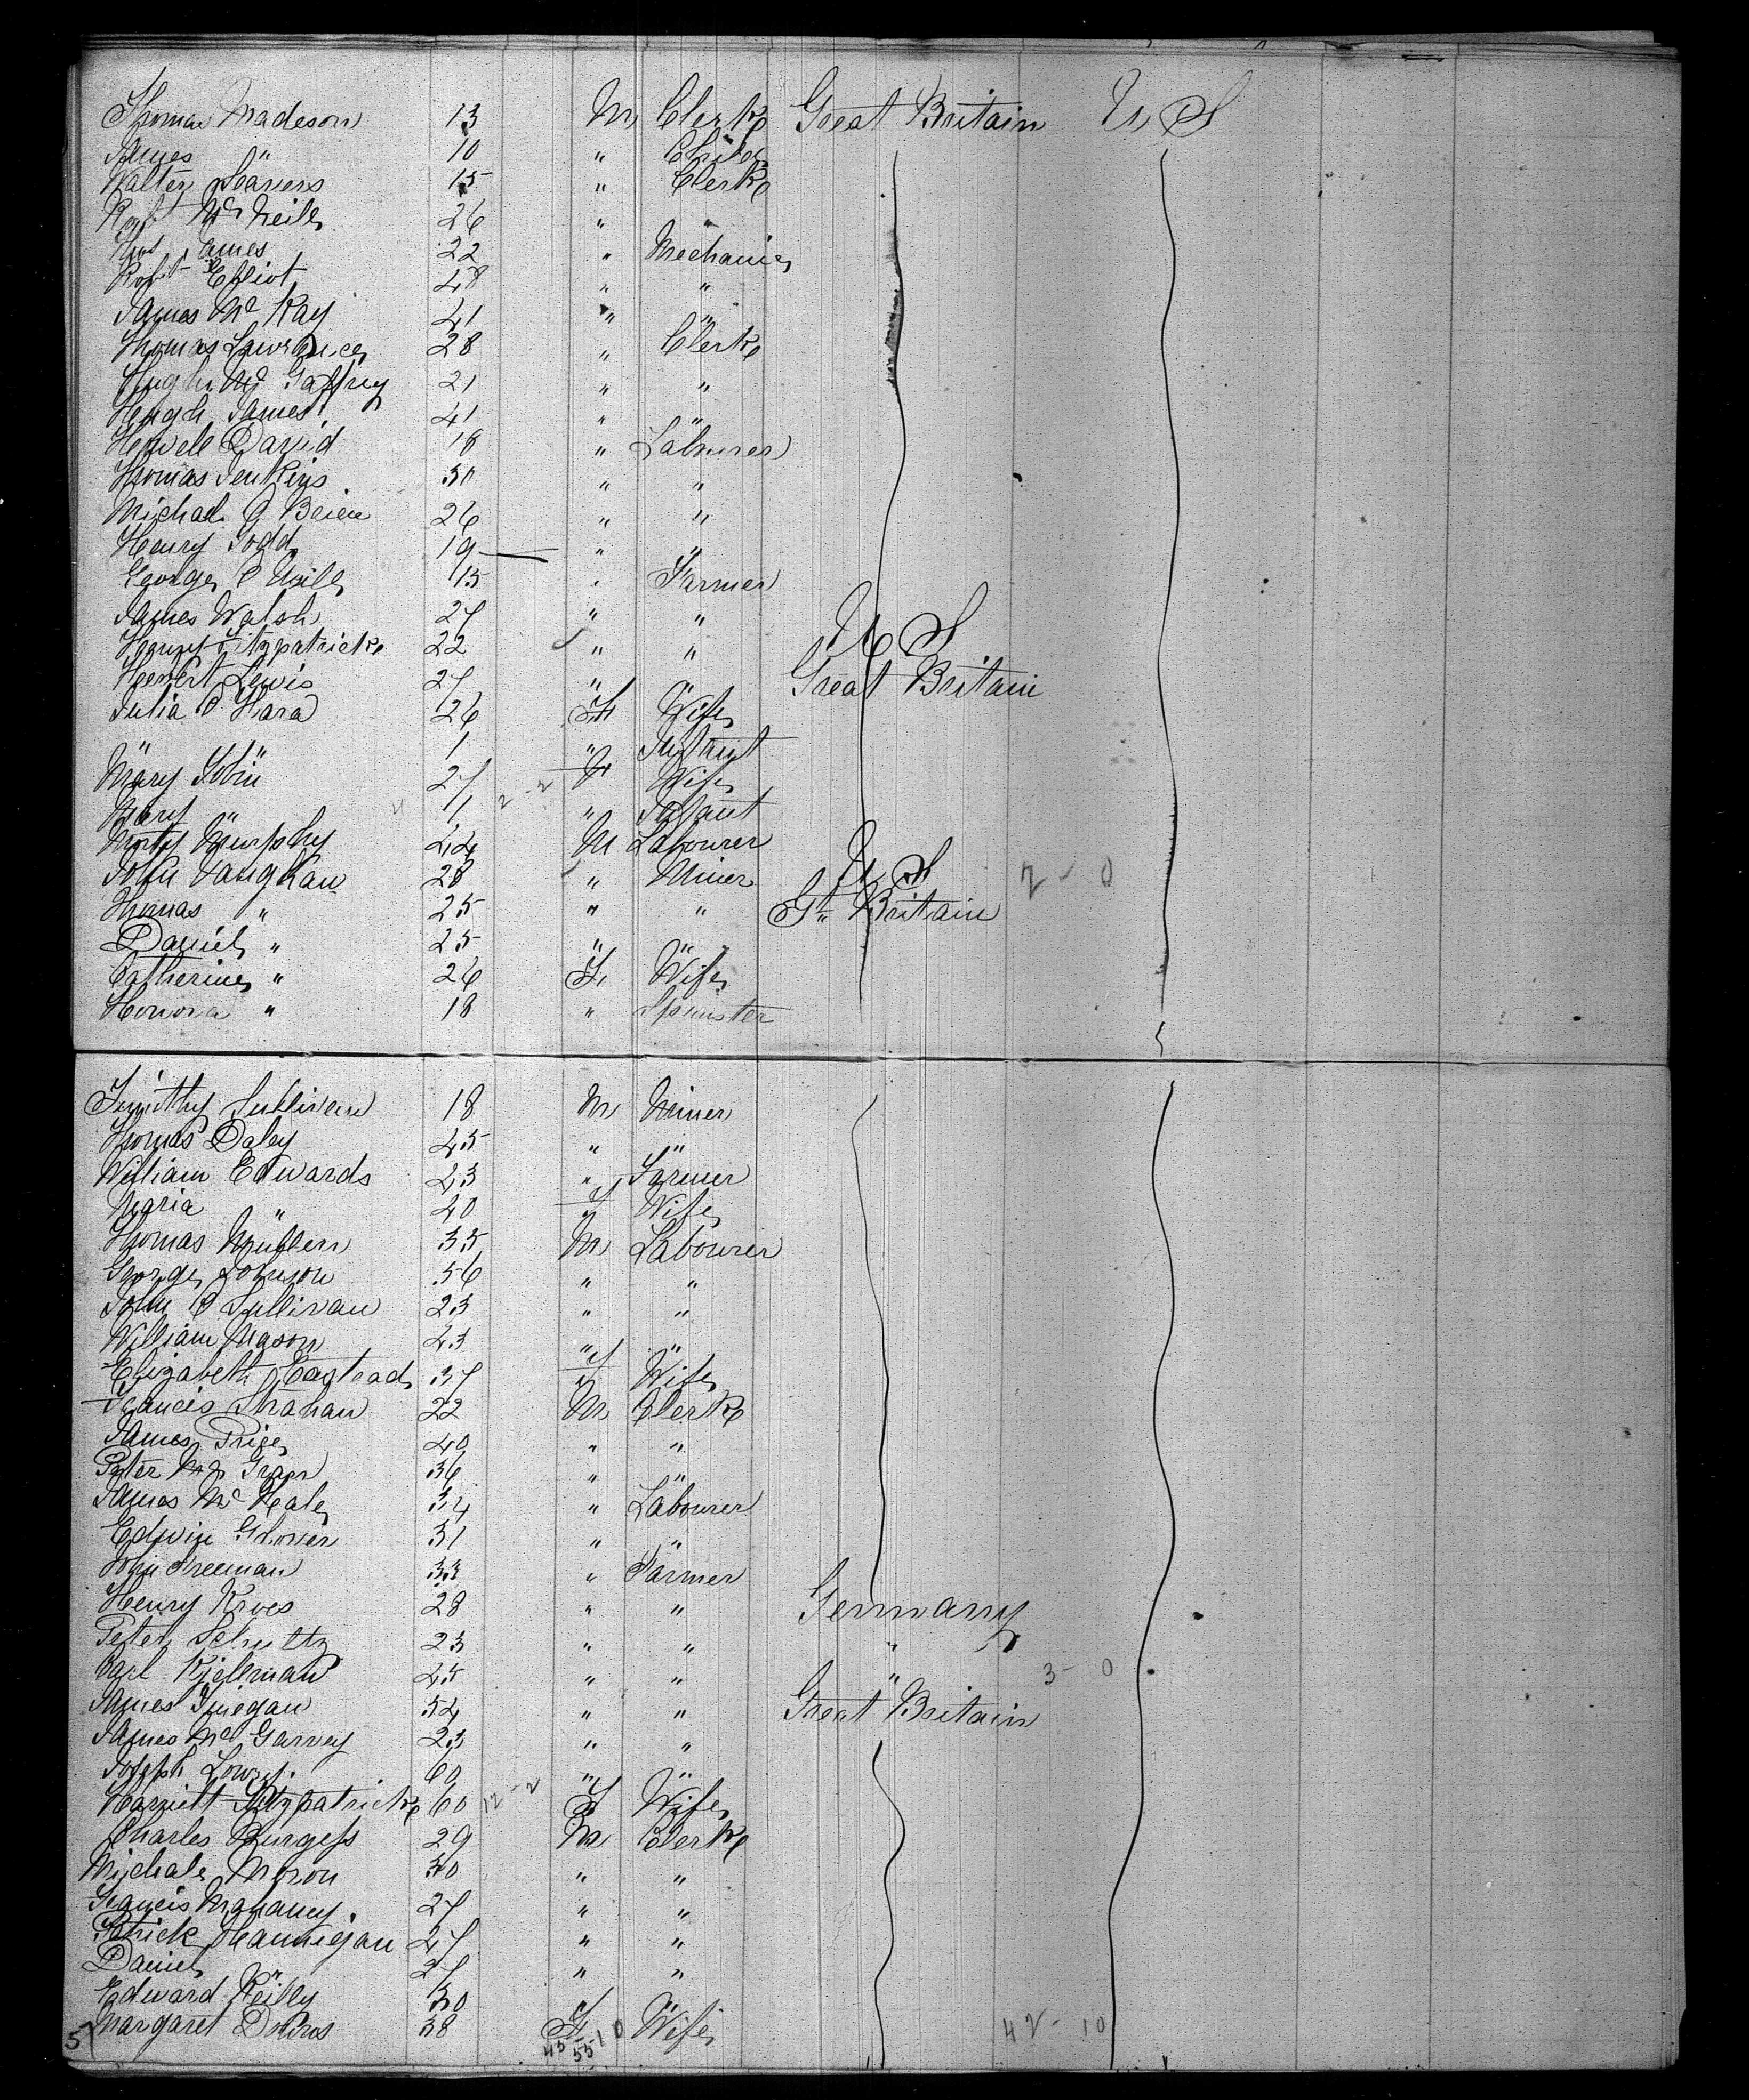 Thomas Madeson 13 M Clerk Great Britain U S
James " 10 " Child
Walter Seavers 15 " Clerk
Robt McNeill 26 " "
James 22 " Mechanic
Robt Elliot 48 " "
James Mc Kay 41 " "
Thomas Lawrence 28 " Clerk
Hugh Mc Gaffrey 21 " "
Hugh James 41 " "
Howell David 18 " Labourer
Thomas Jenkins 30 " "
Michael O Brien 26 " "
Henry Todd 19 " "
George O Neill 15 " Farmer
James Walsh 27 " "
Henry Fitzpatrick 22 " " U S
Lewis 27 " " Great Britain
Julia O Hara 26 F Wife
" " 1 " Infant
Mary Tobin 27 2-2 F Wife
Mary " 1 " Infant
Murphy 44 M Labourer
John Vaughan 28 " Miner U S 2-0
Thomas " 25 " " Gt Britain
Daniel " 25 " "
Catherine " 26 F Wife
Honora " 18 " Spinster
Timothy Sullivan 18 M Miner
Thomas Daley 45 " "
William Edwards 43 " Farmer
Maria " 40 F Wife
Thomas Mullen 35 M Labourer
George Johnson 56 " "
John O Sullivan 23 " "
William Mason 43 " "
Elizabeth 37 F Wife
Francis Shanan 22 M Clerk
James Price 40 " "
Peter Mc 36 " "
James Mc Hale 34 " Labourer
Edwin Glover 31 " "
John Freeman 33 " Farmer
Henry Kroes 28 " " Germany
Peter Schultz 23 " " "
Carl Kjellman 45 " " " 3-0
James Finegan 54 " " Great Britain
James Mc Garvey 23 " "
Joseph Lowry 60 " "
Harriett Fitzpatrick 60 12-2 F Wife
Charles Burgess 29 M Clerk
Michale Moron 30 " "
Francis Mahaney 27 " "
Patrick Hannigan 47 " "
Daniel " 27 " "
Edward Reilly 30 " "
Margaret 38 F Wife 42-10
5 45 55 10